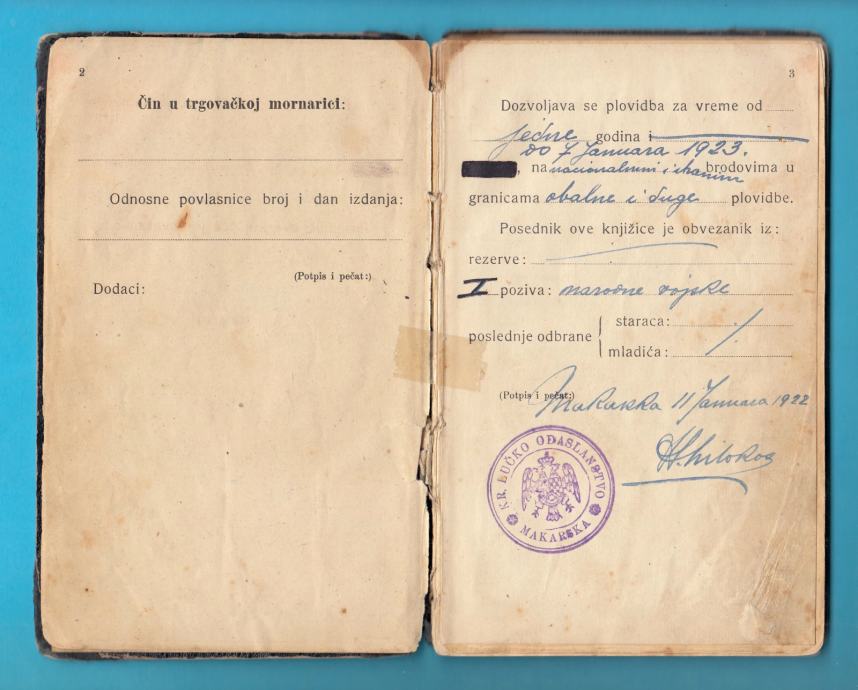 2
Čin u trgovačkoj mornarici:
Odnosne povlasnice broj i dan izdanja:
(Potpis i pečat:)
Dodaci:
3
Dozvoljava se plovidba za vreme od
jedne godina i
do 7 Januara 1923.
, na nacionalnim i stranim brodovima u
granicama obalne i duge plovidbe.
Posednik ove knjižice je obvezanik iz:
rezerve:
I poziva: narodne vojske
poslednje odbrane { staraca:
mladića:
(Potpis i pečat:) Makarska 11 Januara 1922
KR. LUČKO ODASLANSTVO
MAKARSKA